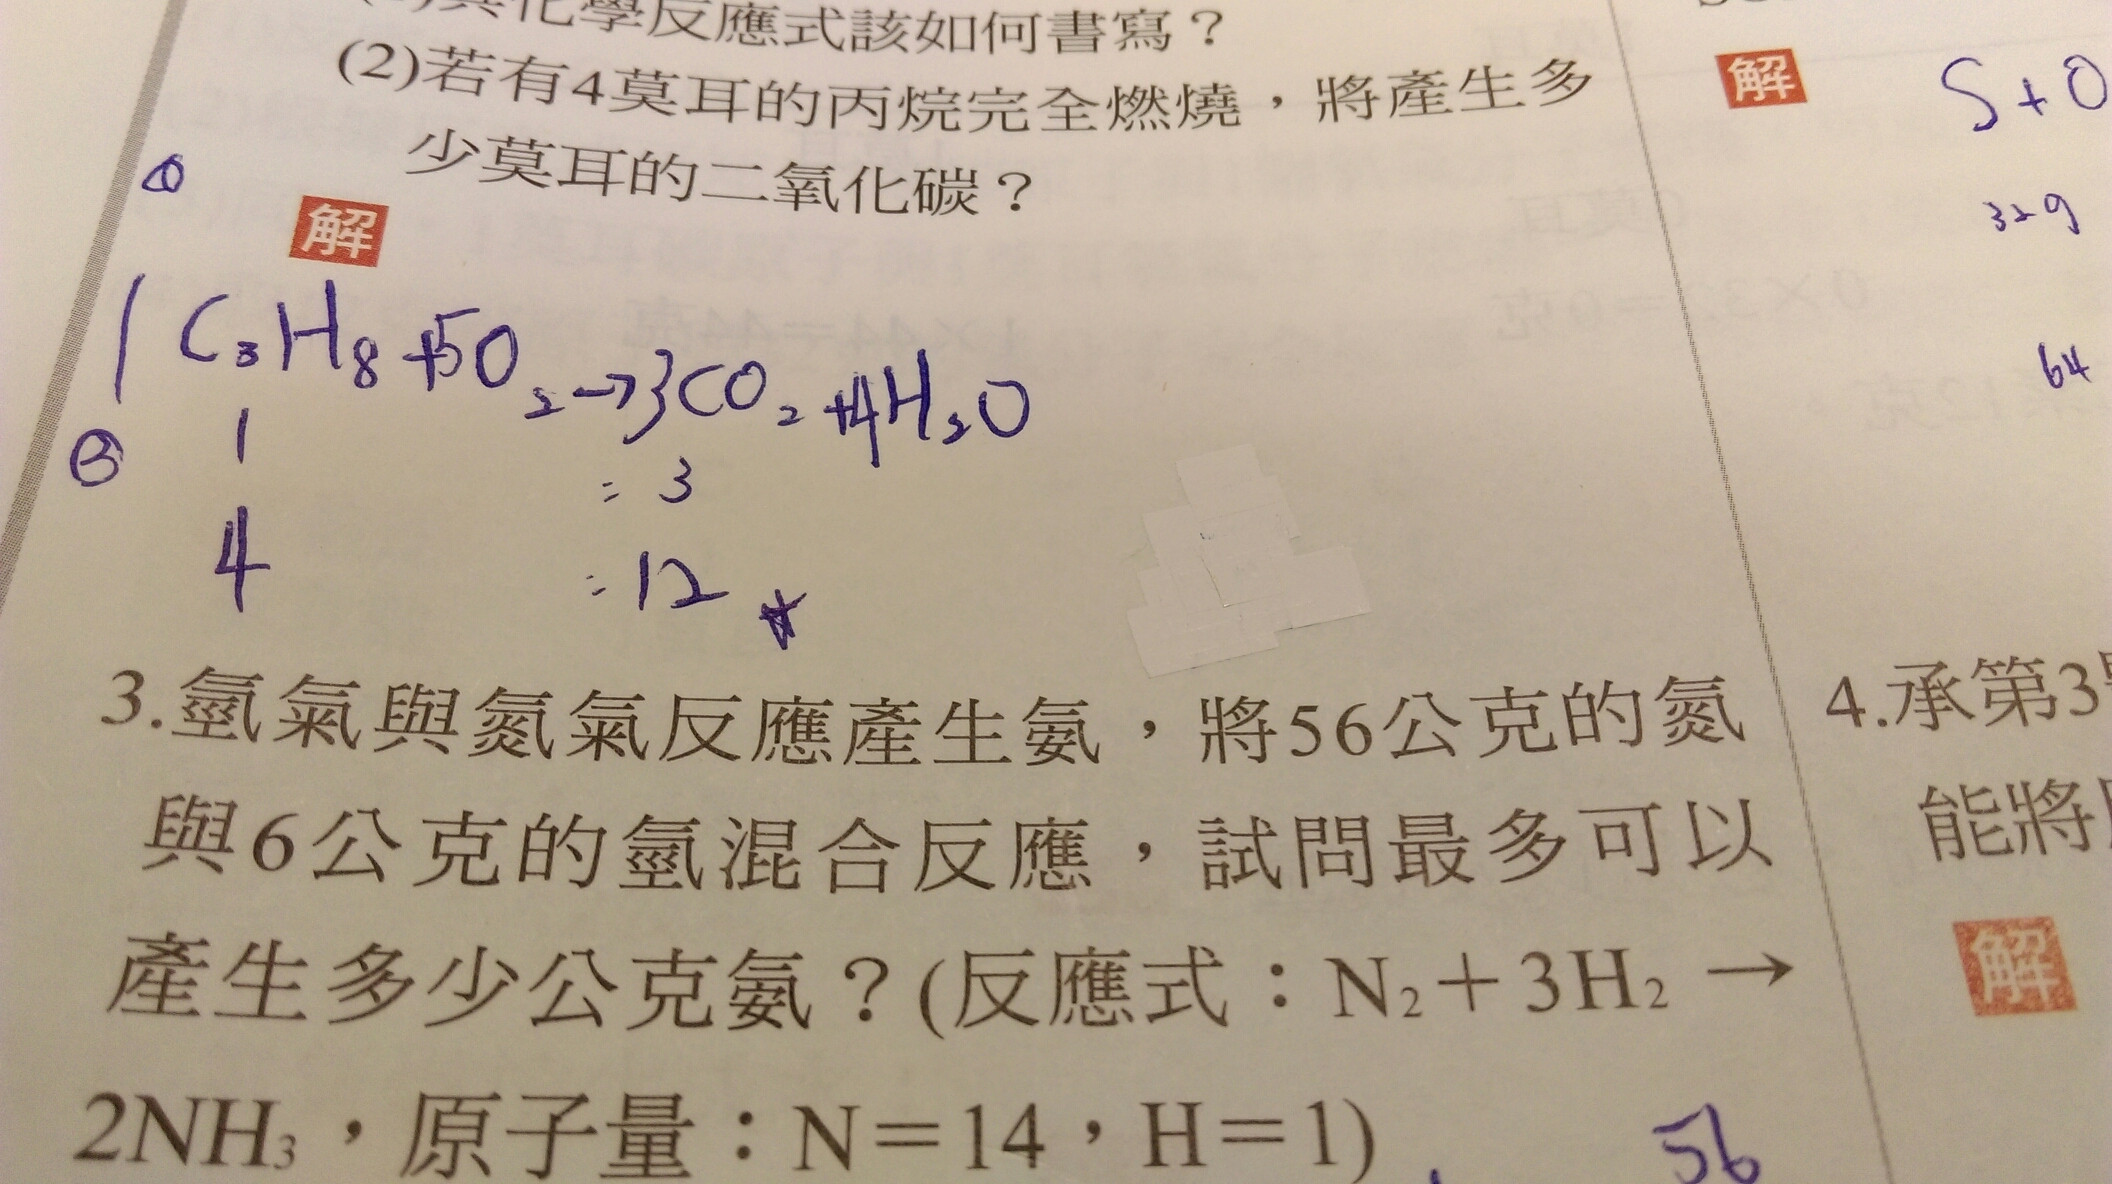 化學反應式該如何書寫？
(2)若有4莫耳的丙烷完全燃燒，將產生多
少莫耳的二氧化碳？
①
解
1 C₃H₈+5O₂→3CO₂+4H₂O
②
1 : 3
4 : 12
3.氫氣與氮氣反應產生氨，將56公克的氮
與6公克的氫混合反應，試問最多可以
產生多少公克氨？(反應式：N₂＋3H₂→
2NH₃，原子量：N＝14，H＝1)
56
解
S+O
32g
64
4.承第3
能將
解